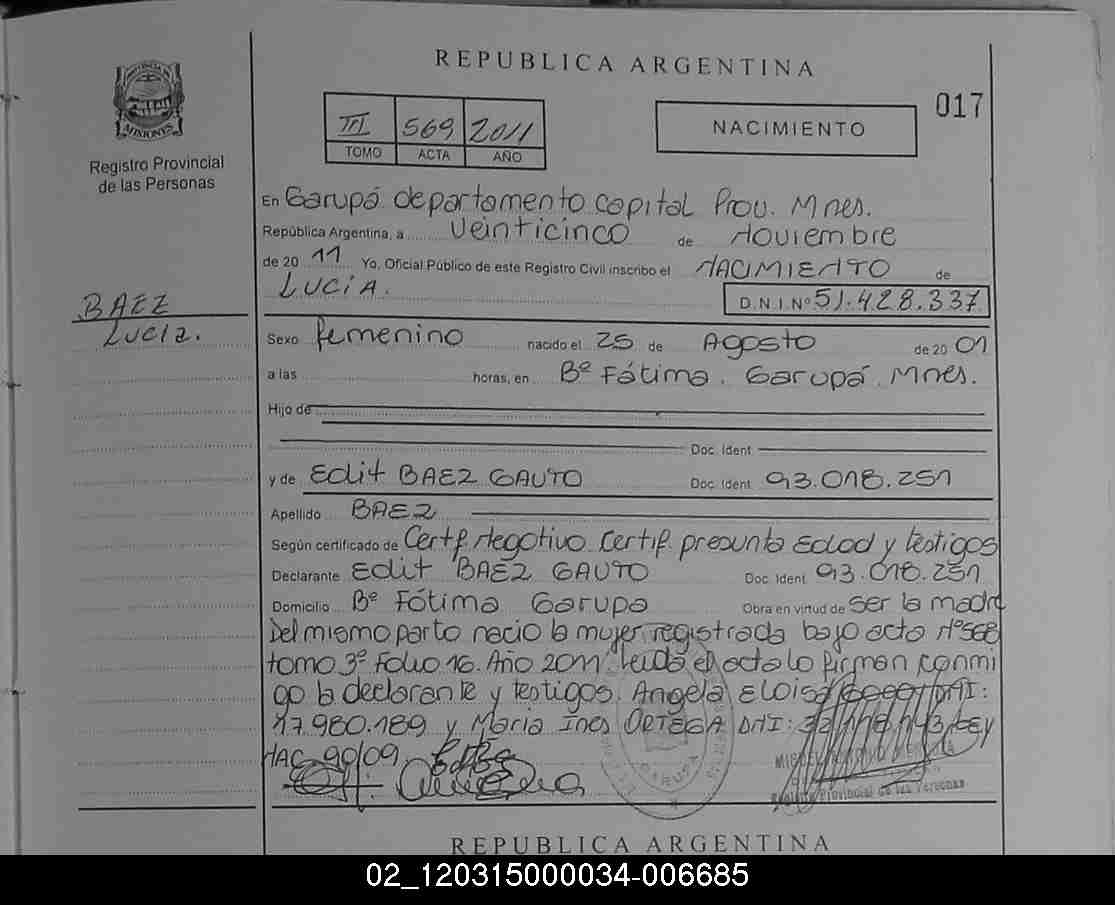 REPUBLICA ARGENTINA
017
III 569 2011
TOMO ACTA AÑO
NACIMIENTO
PROVINCIA DE MISIONES
Registro Provincial
de las Personas
En Garupá departamento capital Prov. Mnes.
República Argentina, a veinticinco de Noviembre
de 2011 Yo, Oficial Público de este Registro Civil inscribo el NACIMIENTO de
LUCIA.
D.N.I.Nº 51.428.337
BAEZ
Lucia.
Sexo femenino nacido el 25 de Agosto de 2001
a las horas, en Bº Fátima. Garupá. Mnes.
Hijo de
Doc. Ident.
y de Edit BAEZ GAUTO Doc. Ident. 93.018.251
Apellido BAEZ
Según certificado de Certf. Negativo. Certif. presunta Edad y testigos
Declarante Edit BAEZ GAUTO Doc. Ident. 93.018.251
Domicilio Bº Fátima Garupa Obra en virtud de ser la madre
Del mismo parto nacio la mujer registrada bajo acta Nº 568
tomo 3º Folio 16. Año 2011. Leida el acta lo firman conmi
go la declarante y testigos. Angela Eloisa DNI:
17.980.189 y Maria Ines ORTEGA DNI: LEY
NAC 90/09
GARUPA
Registro Provincial de las Personas
REPUBLICA ARGENTINA
02_120315000034-006685